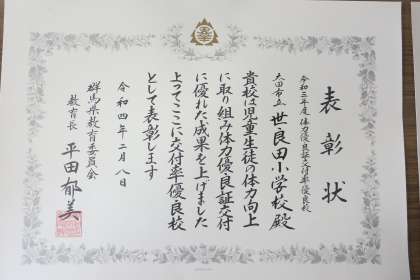 表彰状
令和三年度 体力優良証交付率優良校
太田市立 世良田小学校殿
貴校は児童生徒の体力向上
に取り組み体力優良証交付
に優れた成果を上げました
よってここに交付率優良校
として表彰します
令和四年二月八日
群馬県教育委員会
教育長 平田郁美